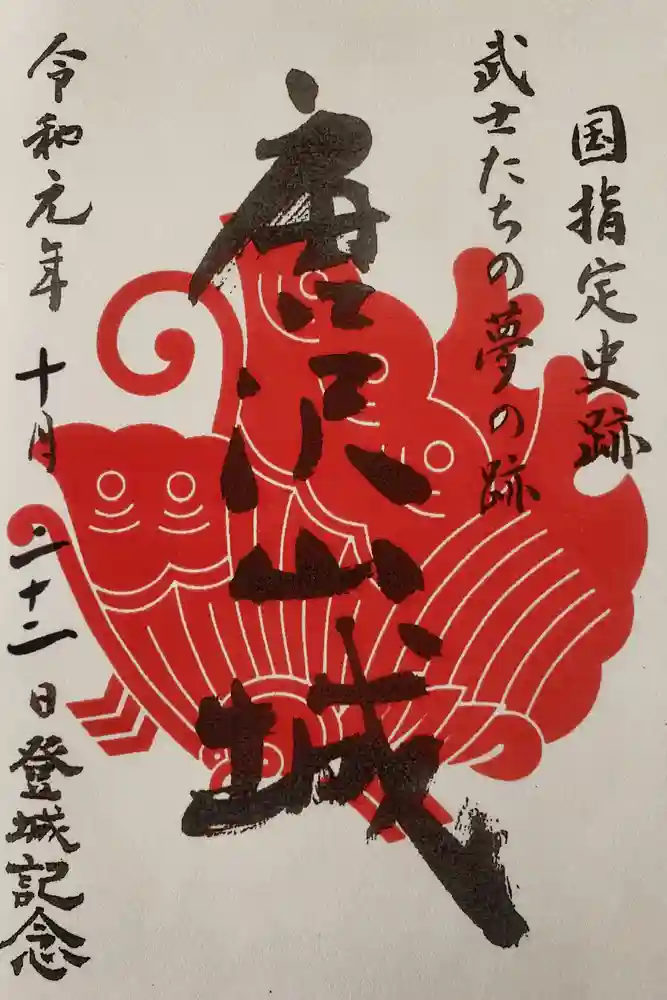 国指定史跡
武士たちの夢の跡
唐沢山城
令和元年十月二十二日登城記念